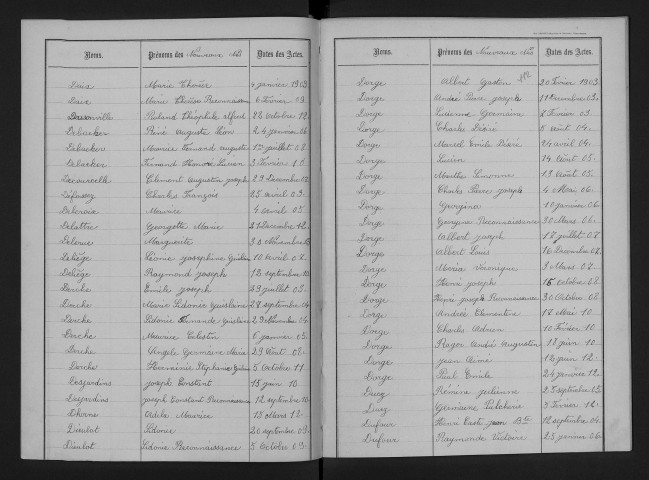 Noms. Prénoms des Nouveaux Nés Dates des Actes.
Daix Marie Thérèse 4 janvier 1903
Daix Marie Thérèse Reconnaissance 6 février 03
Roland Théophile Alfred 22 octobre 12
Debacker René Auguste Léon 24 janvier 06
Debacker Maurice Fernand Auguste 1er juillet 08
Debacker Fernand Honoré Lucien 3 février 10
Decourcelle Clément Augustin Joseph 29 Décembre 02
Charles François 25 avril 03
Delcroix Maurice 4 avril 05
Delattre Georgette Marie 27 Décembre 12
Marguerite 30 Novembre
Deliège Léonie Joséphine Ghislaine 10 avril 07
Deliège Raymond Joseph 12 septembre 10
Derche Emile Joseph 29 juillet 03
Derche Marie Sidonie Ghislaine 27 septembre 04
Derche Sidonie Fernande Ghislaine 29 Novembre 04
Derche Maurice Célestin 6 janvier 05
Derche Angèle Germaine Marie 29 août 08
Derche Herminie Stéphanie 5 octobre 11
Desjardins Joseph Constant 13 juin 10
Desjardins Joseph Constant Reconnaissance 12 septembre 10
Dhorne Adèle Maurice 15 Mars 12
Dieulot Sidonie 20 septembre 03
Dieulot Sidonie Reconnaissance 5 octobre 03
Noms. Prénoms des Nouveaux Nés Dates des Actes.
Dorge Albert Gaston 20 février 1903
Dorge André Pierre Joseph 11 Décembre 03
Dorge Lucienne Germaine 7 février 03
Dorge Charles Désiré 5 août 04
Dorge Marcel Emile Désiré 24 avril 04
Dorge Lucien 14 août 05
Dorge Marthe Simonne 13 août 05
Dorge Charles Pierre Joseph 4 Mai 06
Dorge Georgina 10 janvier 06
Dorge Georgina Reconnaissance 30 Mars 06
Dorge Albert Joseph 17 juillet 07
Dorge Albert Louis 16 Décembre 07
Dorge Maria Véronique 3 Mars 07
Dorge Henri Joseph 15 octobre 08
Dorge Henri Joseph Reconnaissance 30 octobre 08
Dorge Andrée Clémentine 18 Mai 10
Dorge Charles Adrien 10 février 10
Dorge André Augustin 18 juin 10
Dorge Jean Aimé 12 juin 12
Dorge Paul Emile 24 janvier 12
Julienne 23 septembre 12
Germaine Pulchérie 3 février 12
Dufour Henri Jean Bte 12 septembre 04
Dufour Raymonde Victoire 23 janvier 06